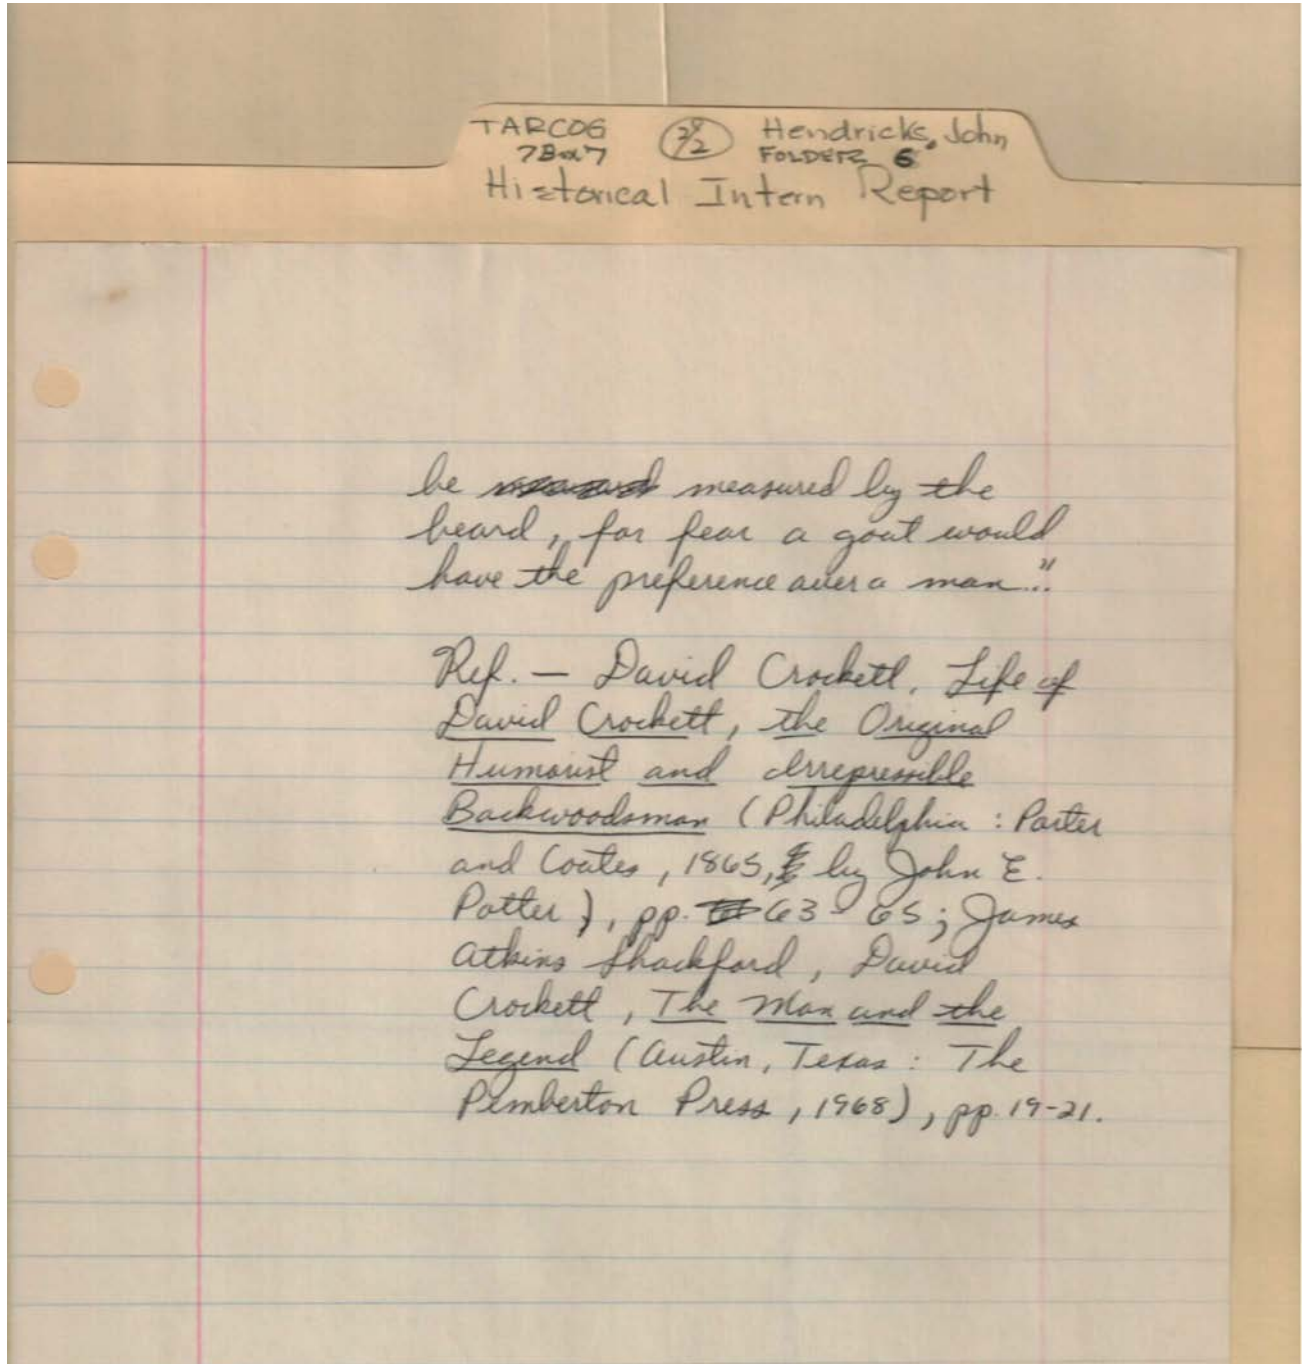 TARCOG
Hendricks, John
FOLDER 6
Historical Intern Report
be measured by the
beard, for fear a goat would
have the preference over a man."
Ref. — David Crockett, Life of
David Crockett, the Original
Humorist and Irrepressible
Backwoodsman (Philadelphia: Porter
and Coates, 1865, by John E.
Potter), pp. 63-65; James
Atkins Shackford, David
Crockett, The Man and the
Legend (Austin, Texas: The
Pemberton Press, 1968), pp. 19-21.